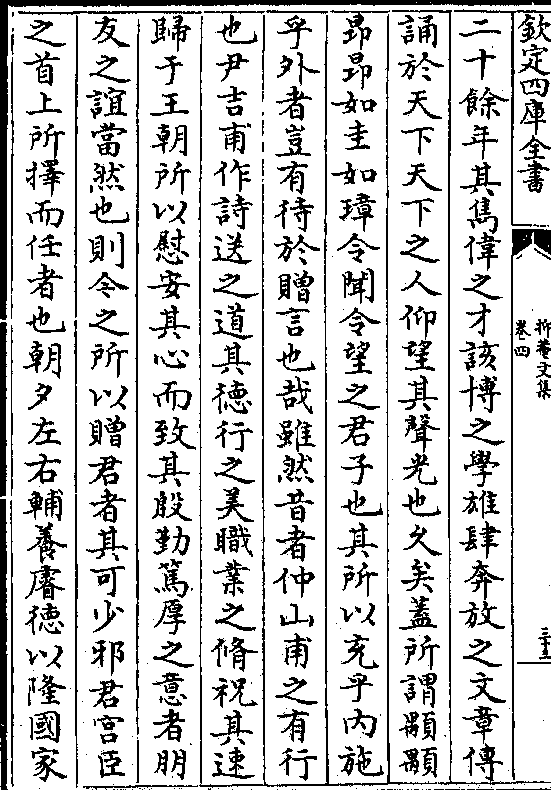 欽定四庫全書
抑菴文集
卷四
三十五
二十餘年其雋偉之才該博之學雄肆奔放之文章傳
誦於天下天下之人仰望其聲光也久矣蓋所謂顒顒
昂昂如圭如璋令聞令望之君子也其所以充乎內施
乎外者豈有待於贈言也哉雖然昔者仲山甫之有行
也尹吉甫作詩送之道其德行之美職業之脩祝其速
歸于王朝所以慰安其心而致其殷勤篤厚之意者朋
友之誼當然也則今之所以贈君者其可少邪君宮臣
之首上所擇而任者也朝夕左右輔養睿德以隆國家